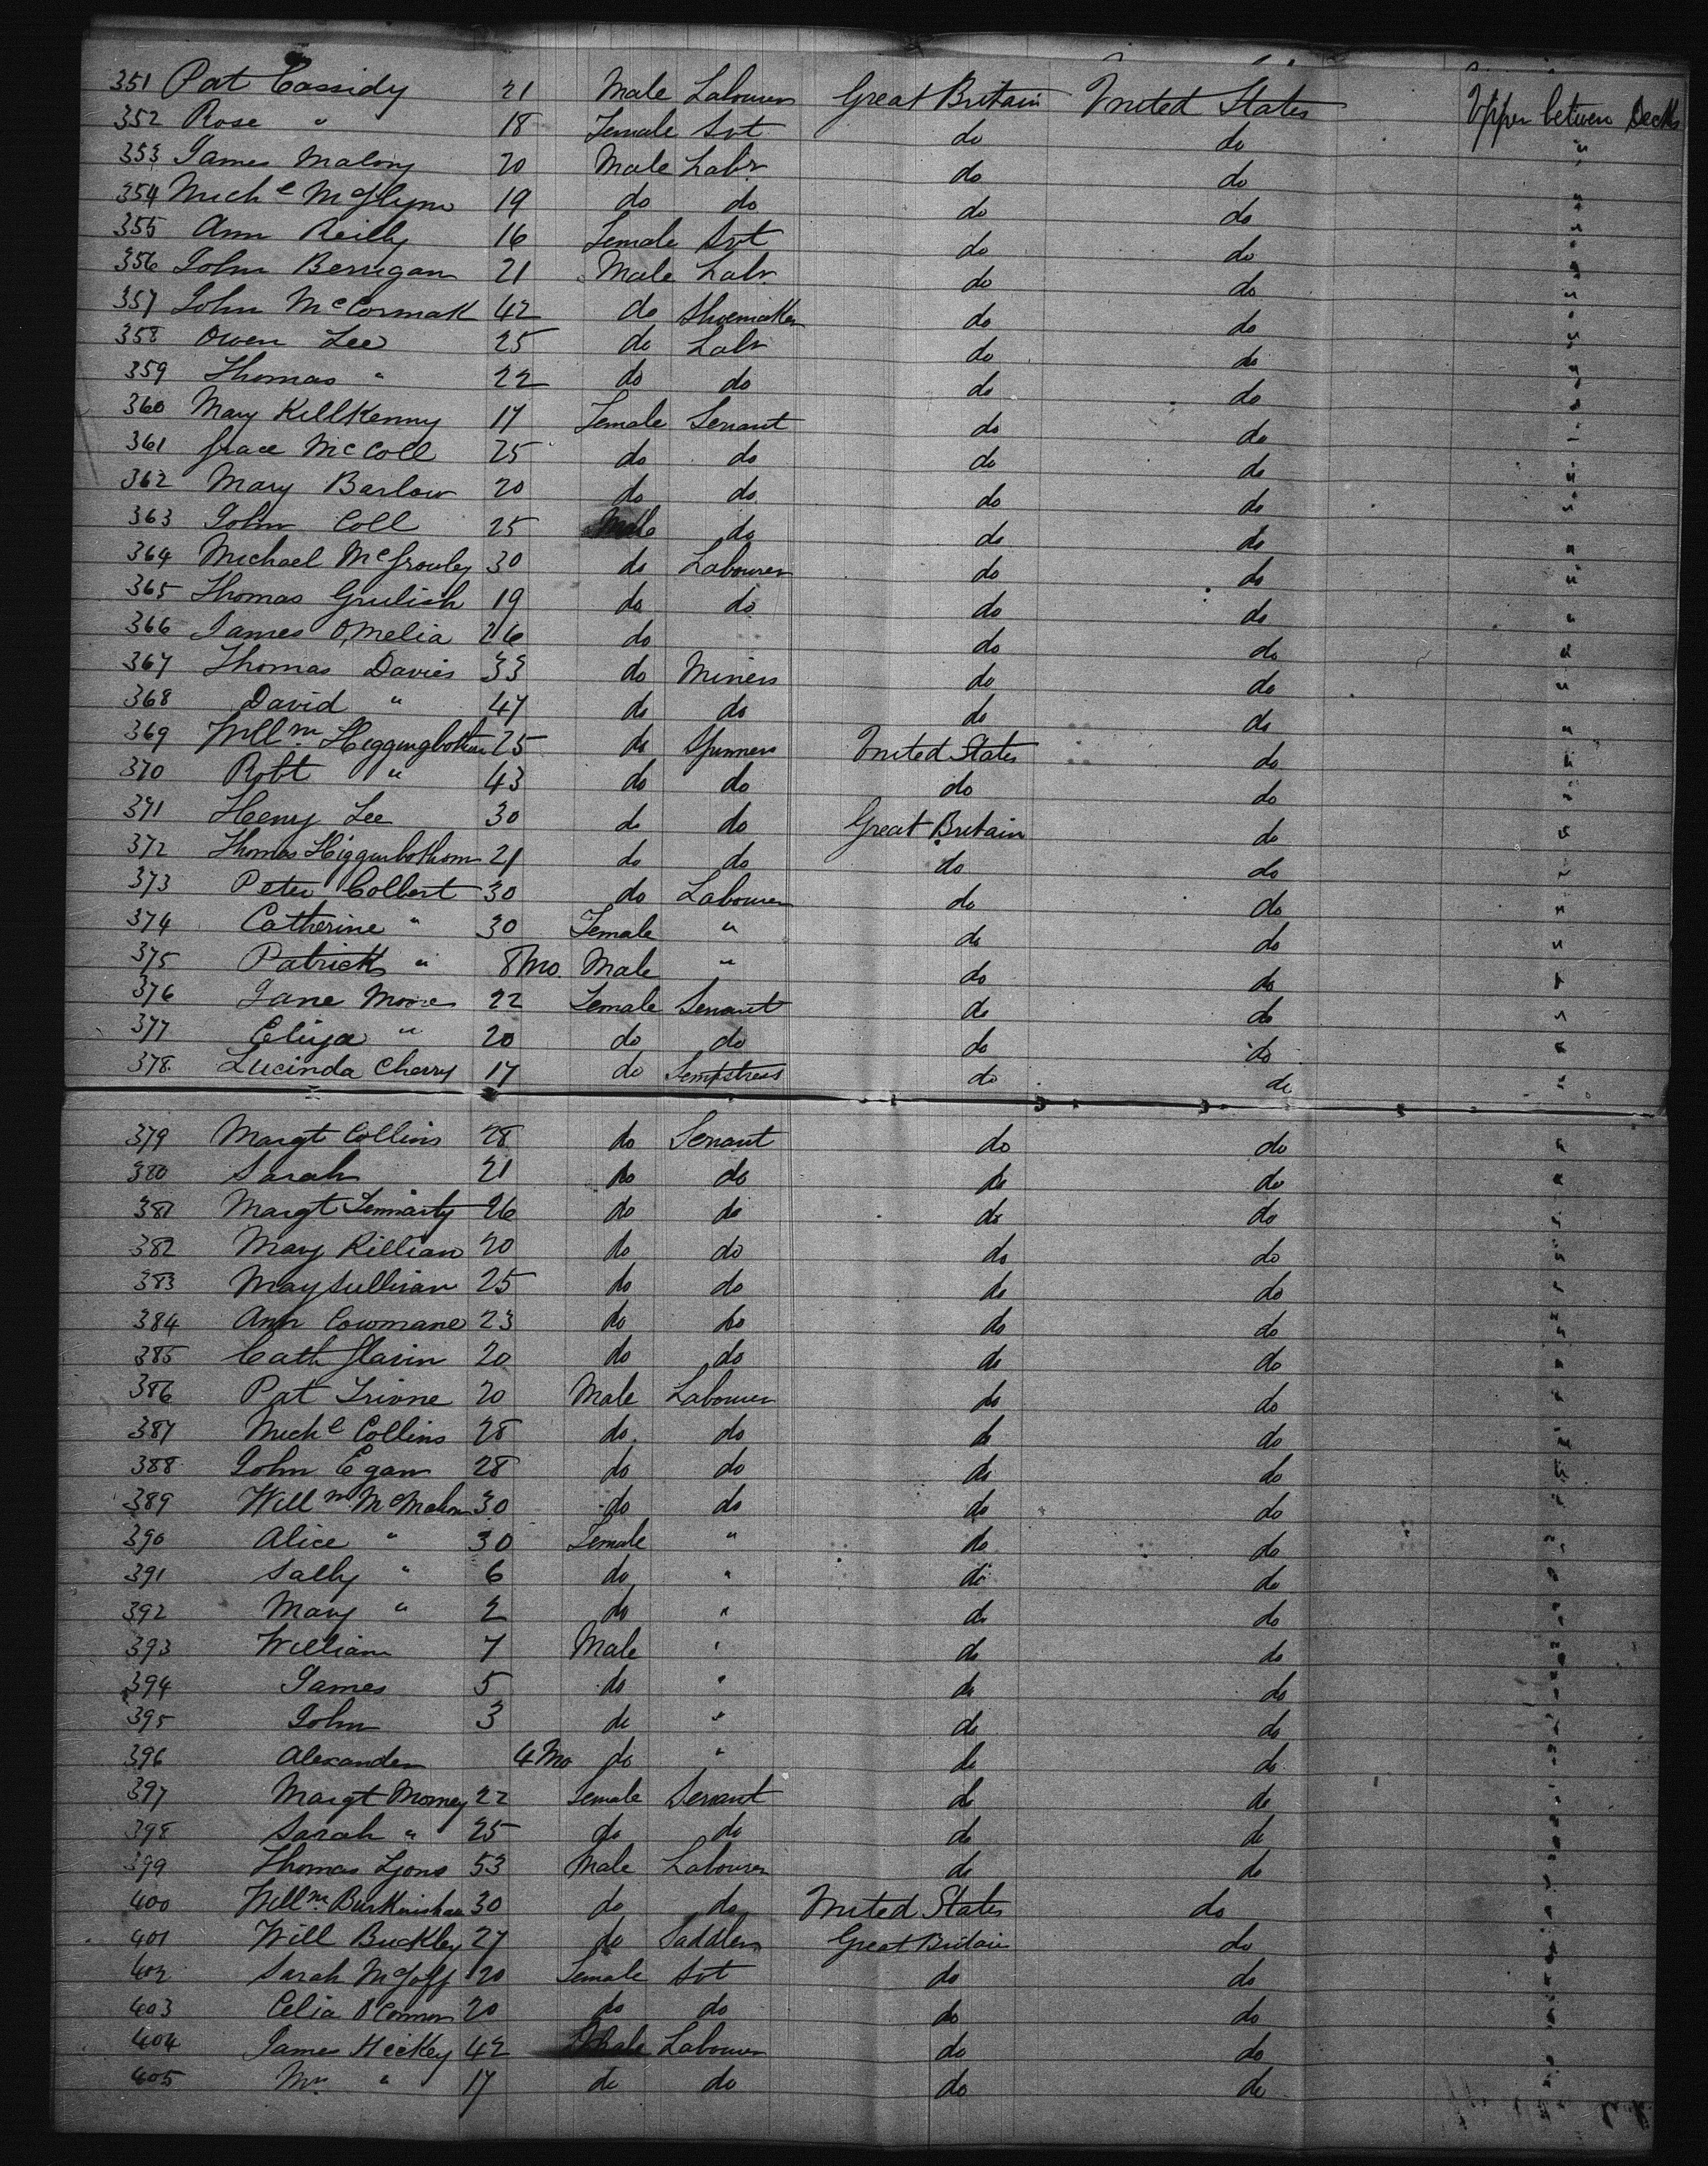 351 Pat Cassidy 21 Male Labourer Great Britain United States Upper between Decks
352 Rose " 18 Female Svt do do "
353 James Malony 20 Male Labr do do "
354 Michl McGlynn 19 do do do do "
355 Ann Reilly 16 Female Svt do do "
356 John Berrigan 21 Male Labr do do "
357 John McCormak 42 do Shoemaker do do "
358 Owen Lee 25 do Labr do do "
359 Thomas " 22 do do do do "
360 Mary Killkenny 17 Female Servant do do "
361 Grace McColl 25 do do do do "
362 Mary Barlow 20 do do do do "
363 John Coll 25 Male do do do "
364 Michael McGrouley 30 do Labourer do do "
365 Thomas Grulish 19 do do do do "
366 James O,Melia 26 do do do "
367 Thomas Davies 33 do Miners do do "
368 David " 47 do do do do "
369 Willm Higgingbottom 25 do Spinners United States do "
370 Robt " 43 do do do do "
371 Henry Lee 30 do do Great Britain do "
372 Thomas Higginbothom 21 do do do do "
373 Peter Colbert 30 do Labourer do do "
374 Catherine " 30 Female " do do "
375 Patrick " 8 Mo Male " do do "
376 Jane Moore 22 Female Servant do do "
377 Eliza " 20 do do do do "
378 Lucinda Cherry 17 do Sempstress do do "
379 Margt Collins 28 do Servant do do "
380 Sarah 21 do do do do "
381 Margt 26 do do do do "
382 Mary Killian 20 do do do do "
383 May Sullivan 25 do do do do "
384 Ann Cowmane 23 do do do do "
385 Cath Slavin 20 do do do do "
386 Pat 20 Male Labourer do do "
387 Michl Collins 28 do do do do "
388 John Egan 28 do do do do "
389 Willm McMahon 30 do do do do "
390 Alice " 30 Female " do do "
391 Sally " 6 do " do do "
392 Mary " 2 do " do do "
393 William 7 Male " do do "
394 James 5 do " do do "
395 John 3 do " do do "
396 Alexander 4 Mo do " do do "
397 Margt Morney 22 Female Servant do do "
398 Sarah " 25 do do do do "
399 Thomas Lyons 53 Male Labourer do do "
400 Willm Burkinshaw 30 do do United States do "
401 Will Buckley 27 do Saddler Great Britain do "
402 Sarah McGoff 20 Female Svt do do "
403 Celia O'Connor 20 do do do do "
404 James Hickey 42 Male Labourer do do "
405 " 17 do do do do "